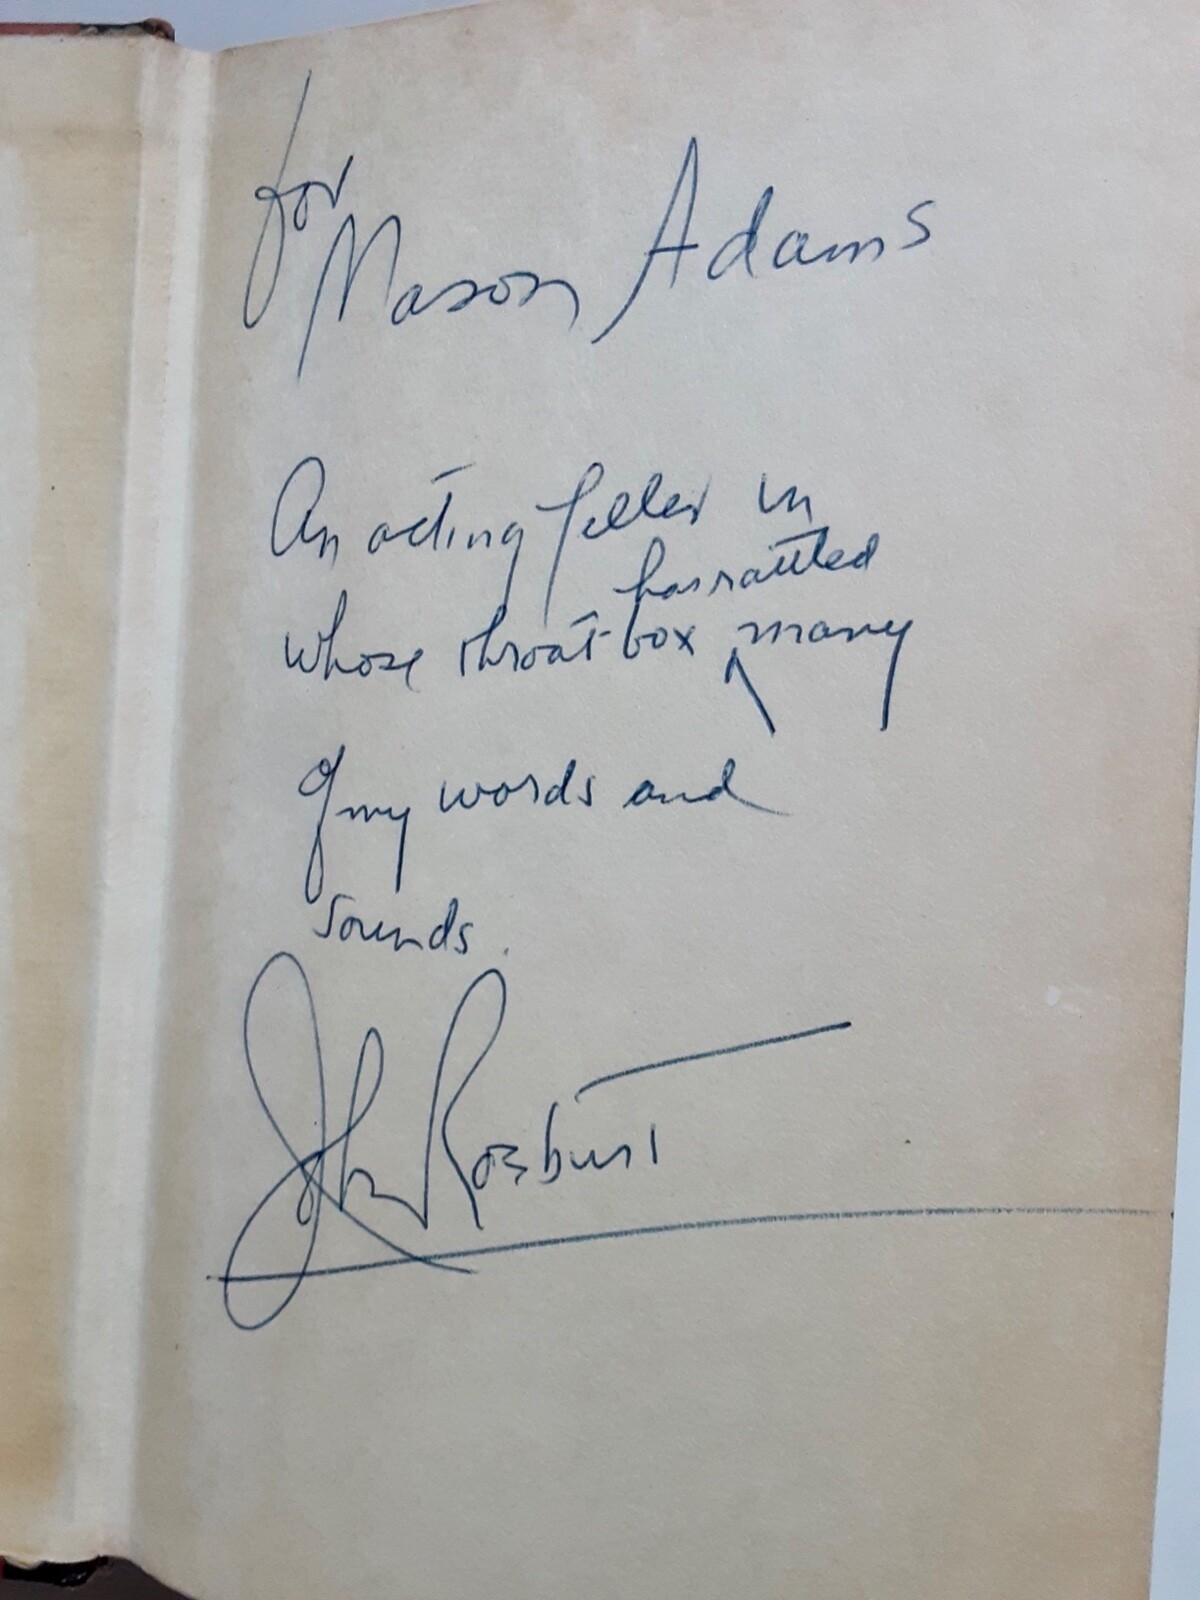 for
Mason Adams
An acting feller in
has rattled
whose throat-box many
of my words and
sounds.
John Roeburt